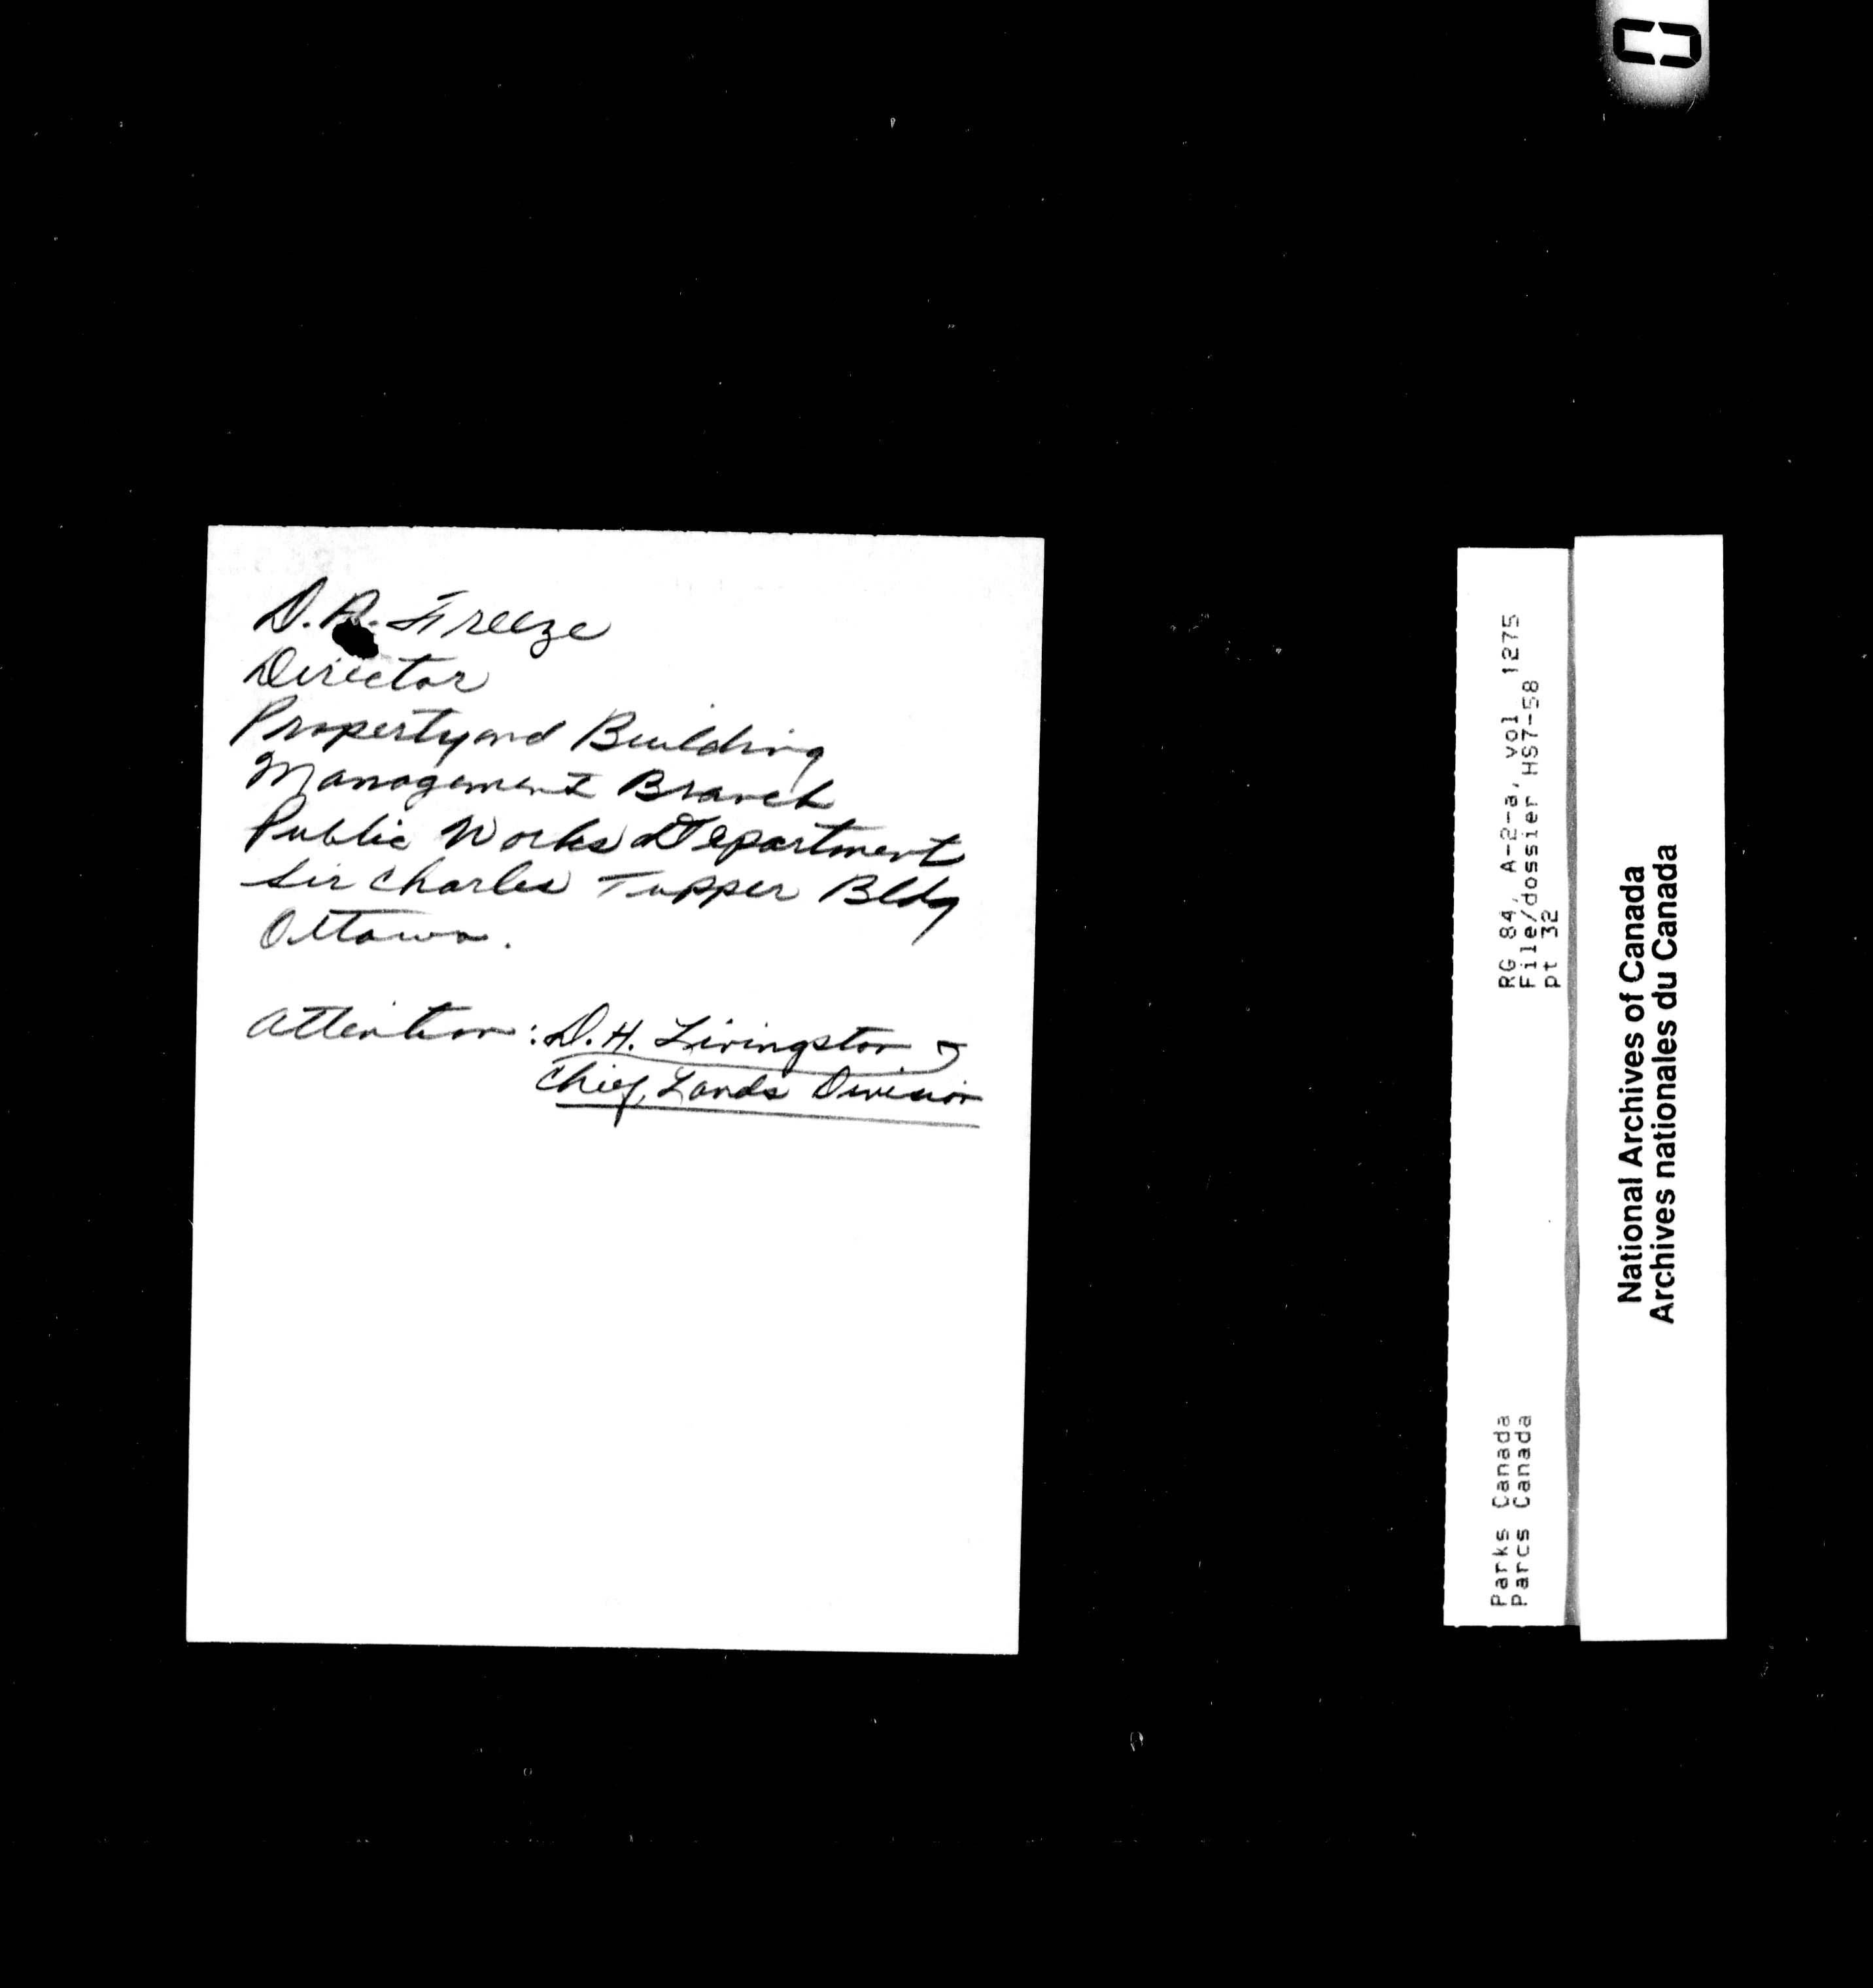 D. A. Freeze
Director
Property and Building
Management Branch
Public Works Department
Sir Charles Tupper Bldg
Ottawa.
Attention: D. H. Livingston
Chief, Lands Division
RG 84, A-2-a, vol. 1275
File/dossier HS7-58
pt 32
Parks Canada
Parcs Canada
National Archives of Canada
Archives nationales du Canada
0